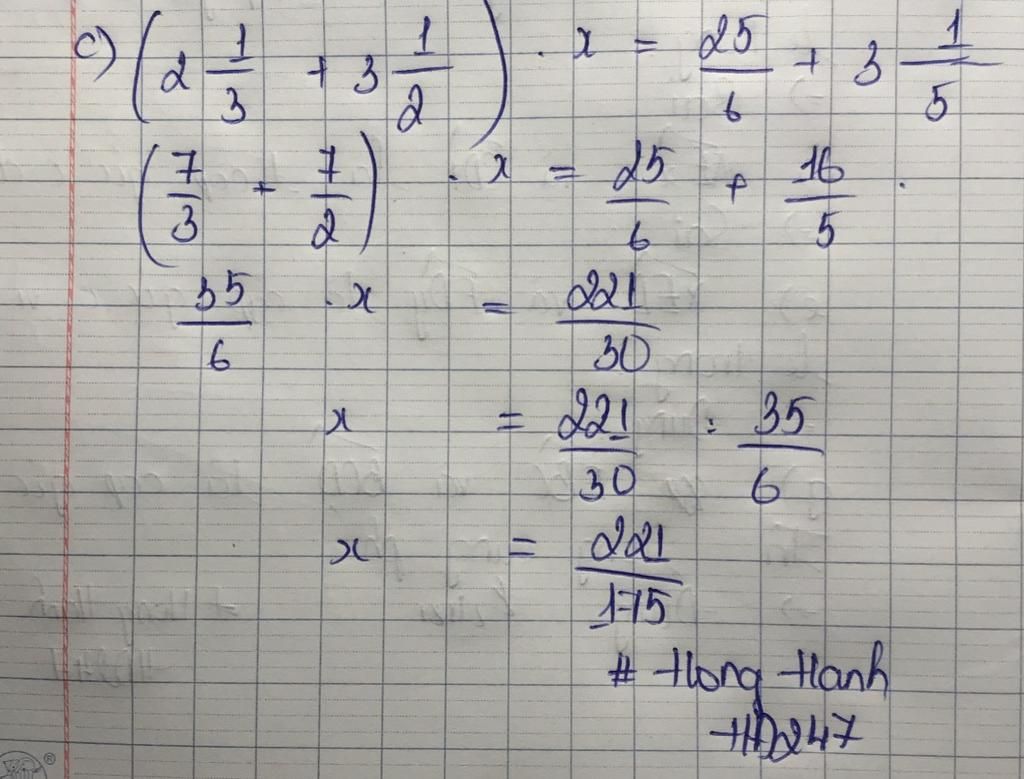 c) (2 1/3 + 3 1/2) . x = 25/6 + 3 1/5
(7/3 + 7/2) . x = 25/6 + 16/5
35/6 . x = 221/30
x = 221/30 : 35/6
x = 221/175
# Hong Hanh
HD247